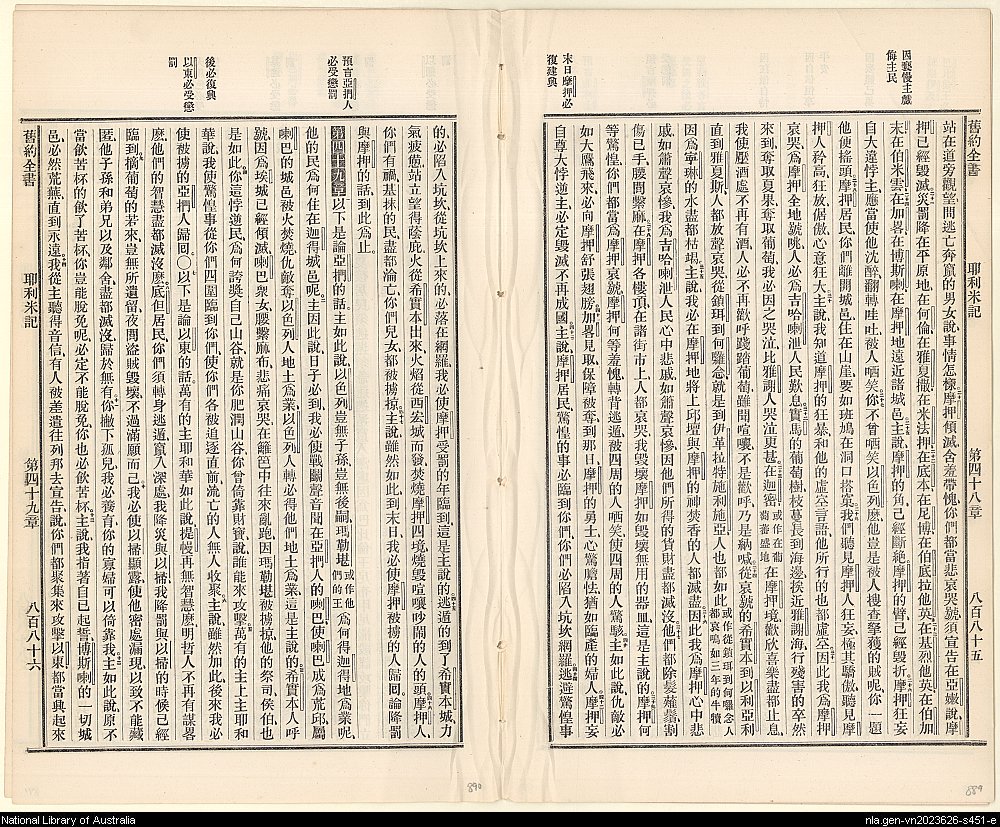 因褻慢主戲
侮主民
末日摩押必
復建興
舊約全書 耶利米記 第四十八章 八百八十五
站在道旁觀望問逃亡奔竄的男女說事情怎樣摩押傾滅含羞帶愧你們都當悲哀哭號須宣告在亞嫩說摩
押已經毀滅災罰降在平原地在何倫在雅夏撒在米法押在底本在尼博在伯底拉他英在基烈他英在伯加
末在伯米雲在加畧在博斯喇在摩押地遠近諸城邑主說摩押的角已經斷絶摩押的臂已經毀折摩押狂妄
自大違悖主應當使他沈醉翻轉哇吐被人哂笑你不曾哂笑以色列麽他豈是被人搜查拏獲的賊呢你一題
他便搖頭摩押居民你們離開城邑住在山崖要如班鳩在洞口搭窠我們聽見摩押人狂妄極其驕傲聽見摩
押人矜高狂放倨傲心意狂大主說我知道摩押的狂暴和他的虛空言語他所行的也都虛空因此我爲摩押
哀哭爲摩押全地號咷人必爲吉哈喇泄人民歎息實馬的葡萄樹枝蔓長到海邊挨近雅謝海行殘害的卒然
來到奪取夏果奪取葡萄我必因之哭泣比雅謝人哭泣更甚在迦密或作在葡萄蕃盛地在摩押境歡欣喜樂盡都止息
我使壓酒處不再有酒人必不再歡呼踐踏葡萄雖聞喧嚷不是歡呼乃是納喊從哀號的希實本到以利亞利
直到雅夏斯人都放聲哀哭從鎖珥到何囉念就是到伊革拉特施利施亞人也都如此或作從鎖珥到何囉念人都哀鳴如三年的牛犢
因爲寧琳的水盡都枯竭主說我必在摩押地將上邱壇與摩押的神焚香的人都滅盡因此我爲摩押心中悲
戚如簫聲哀慘我爲吉哈喇泄人民心中悲戚如簫聲哀慘因他們所得的貨財盡都滅沒他們都除髮薙鬚割
傷已手腰間繫麻在摩押各樓頂在諸街市上人都哀哭我毀壞摩押如毀壞無用的器皿這是主說的摩押何
等驚惶你們都當爲摩押哀號摩押何等羞愧轉背逃遁被四周的人哂笑使四周的人驚駭主如此說仇敵必
如大鷹飛來必向摩押舒張翅膀加畧見取保障被奪到那日摩押的勇士心驚膽怯猶如臨產的婦人摩押妄
自尊大悖逆主必定毀滅不再成國主說摩押居民驚惶的事必臨到你們你們必陷入坑坎網羅逃避驚惶事
預言亞捫人
必受懲罰
後必復興
以東必受懲
罰
的必陷入坑坎從坑坎上來的必落在網羅我必使摩押受罰的年臨到這是主說的逃遁的到了希實本城力
氣疲憊站立望得蔭庇火從希實本出來火焰從西宏城而發焚燒摩押四境燒毀喧嚷吵鬧的人的頭摩押人
你們有禍基抹的民盡都淪亡你們兒女都被擄掠主說雖然如此到末日我必使摩押被擄的人歸回論降罰
與摩押的話到此爲止
第四十九章以下是論亞捫的話主如此說以色列豈無子孫豈無後嗣瑪勒堪或作他們的王爲何得迦得地爲業呢
他的民爲何住在迦得城邑呢主因此說日子必到我必使戰鬬聲音聞在亞捫人的喇巴使喇巴成爲荒邱屬
喇巴的城邑被火焚燒仇敵奪以色列人地土爲業以色列人轉必得他們地土爲業這是主說的希實本人呼
號因爲埃城已經傾滅喇巴衆女腰繫麻布悲痛哀哭在籬笆中往來亂跑因瑪勒堪被擄掠他的祭司侯伯也
是如此你這悖逆民爲何誇獎自己山谷就是你肥潤山谷你曾倚靠財寶說誰能來攻擊萬有的主上主耶和
華說我使驚惶事從你們四圍臨到你們使你們各被追逐直前流亡的人無人收聚主說雖然加此後來我必
使被擄的亞捫人歸回○以下是論以東的話萬有的主耶和華如此說提幔再無智慧麽明哲人不再有謀畧
麽他們的智慧盡都滅沒麽底但居民你們須轉身逃遁竄入深處我降災與以掃我降罰與以掃的時候已經
臨到摘葡萄的若來豈無所遺留夜間盜賊毀壞不過滿願而已我必使以掃顯露使他密處漏現以致不能藏
匿他子孫和弟兄以及鄰舍盡都滅沒歸於無有你撇下孤兒我必養育你的寡婦可以倚靠我主如此說原不
當飲苦杯的飲了苦杯你豈能脫免呢必定不能脫免你也必飲苦杯主說我指著自己起誓博斯喇的一切城
邑必然荒蕪直到永遠我從主聽得音信有人被差遣往列邦去宣告說你們都聚集來攻擊以東都當興起來
舊約全書 耶利米記 第四十九章 八百八十六
890
889
National Library of Australia
nla.gen-vn2023626-s451-e